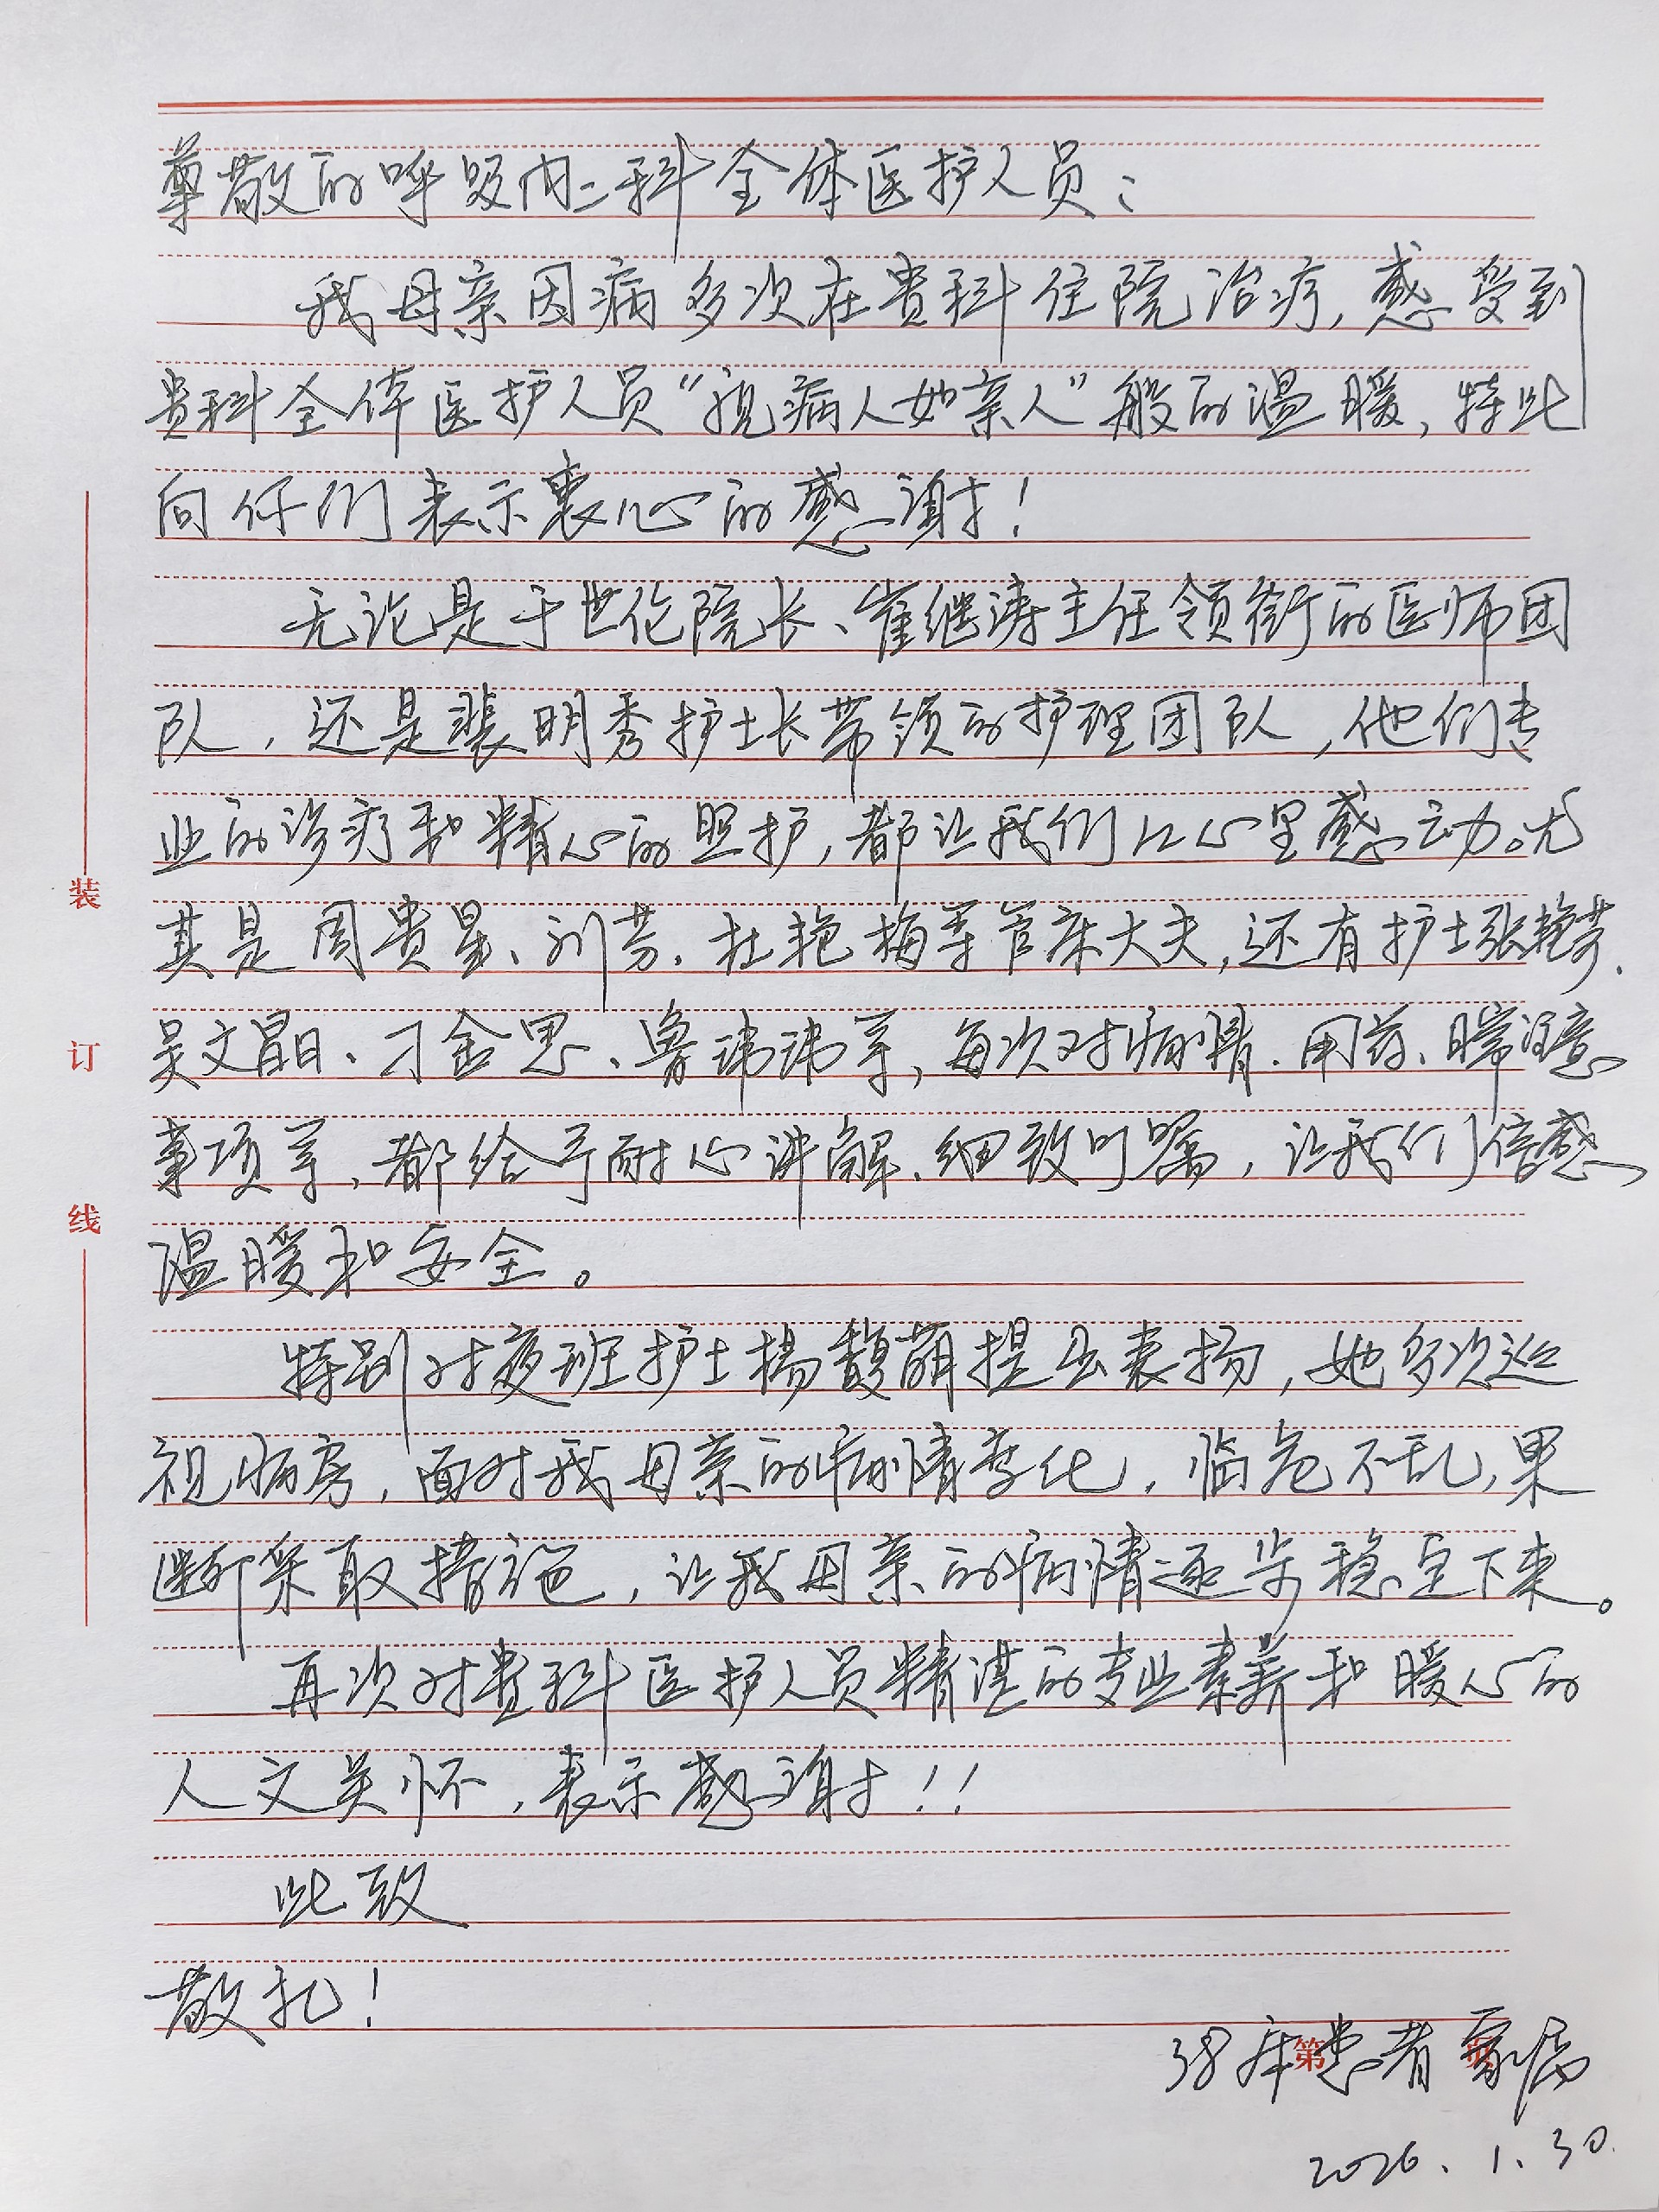 尊敬的呼吸内二科全体医护人员：
我母亲因病多次在贵科住院治疗，感受到
贵科全体医护人员“视病人如亲人”般的温暖，特此
向你们表示衷心的感谢！
无论是于世伦院长、崔继涛主任领衔的医师团
队，还是裴明秀护士长带领的护理团队，他们专
业的诊疗和精心的照护，都让我们从心里感动。尤
其是周贵星、刘芳、杜艳梅等管床大夫，还有护士张艳芳、
吴文昌、刁金思、鲁玮玮等，每次对病情、用药、日常注意
事项等，都给予耐心讲解、细致叮嘱，让我们倍感
温暖和安全。
特别对夜班护士杨馥萌提出表扬，她多次巡
视病房，面对我母亲的病情变化，临危不乱，果
断采取措施，让我母亲的病情逐步稳定下来。
再次对贵科医护人员精湛的专业素养和暖心的
人文关怀，表示感谢！！
此致
敬礼！
38床患者家属
2026.1.30.
装
订
线
第